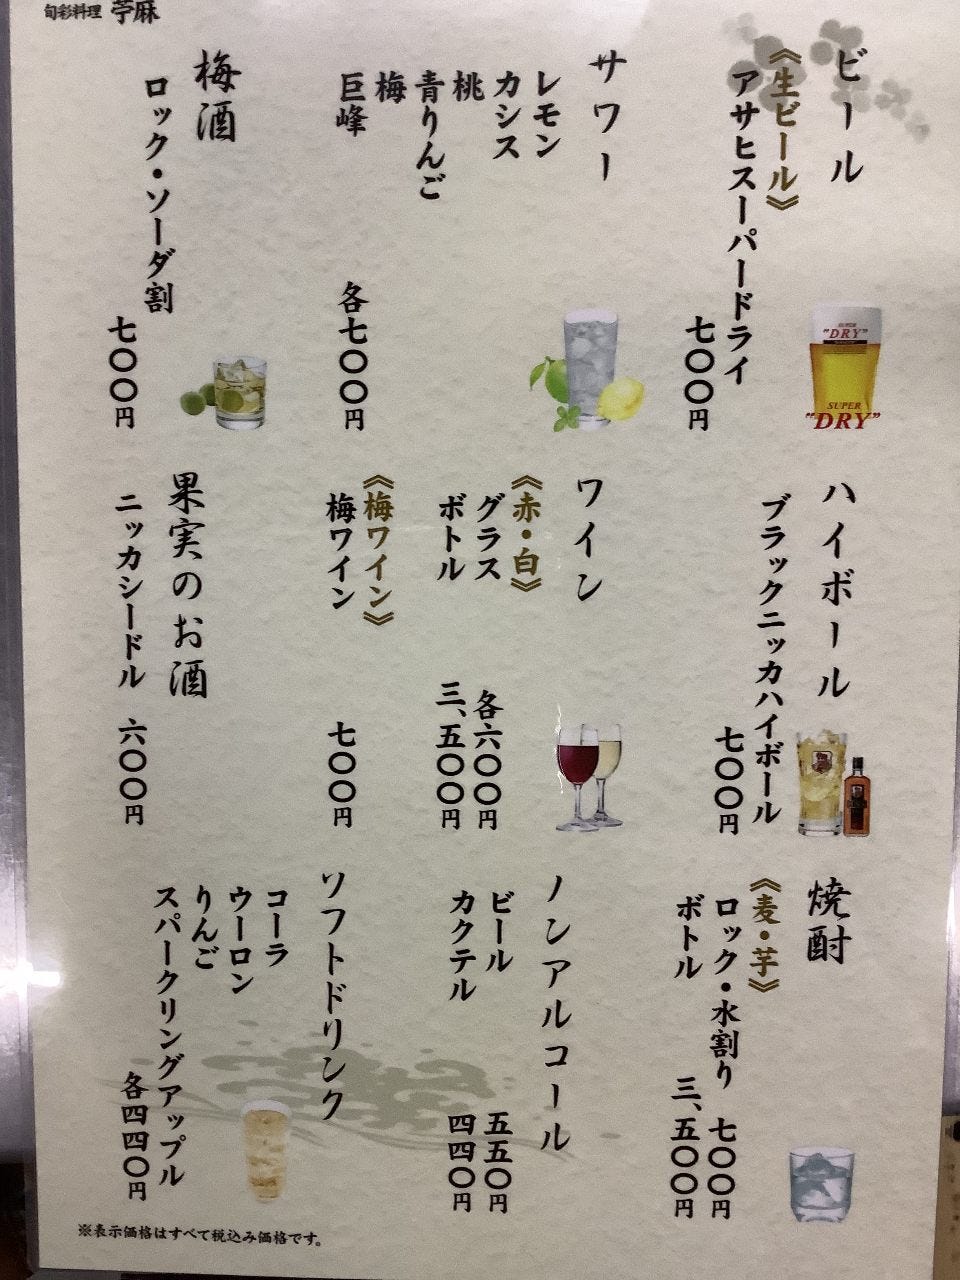 旬彩料理 苧麻
ビール
《生ビール》
アサヒスーパードライ
七〇〇円
SUPER
"DRY"
SUPER
"DRY"
サワー
レモン
カシス
桃
青りんご
梅
巨峰
各七〇〇円
梅酒
ロック・ソーダ割
七〇〇円
ハイボール
ブラックニッカハイボール
七〇〇円
ワイン
《赤・白》
グラス
各六〇〇円
ボトル
三、五〇〇円
《梅ワイン》
梅ワイン
七〇〇円
果実のお酒
ニッカシードル
六〇〇円
焼酎
《麦・芋》
ロック・水割り
七〇〇円
ボトル
三、五〇〇円
ノンアルコール
ビール
五五〇円
カクテル
四四〇円
ソフトドリンク
コーラ
ウーロン
りんご
スパークリングアップル
各四四〇円
※表示価格はすべて税込み価格です。